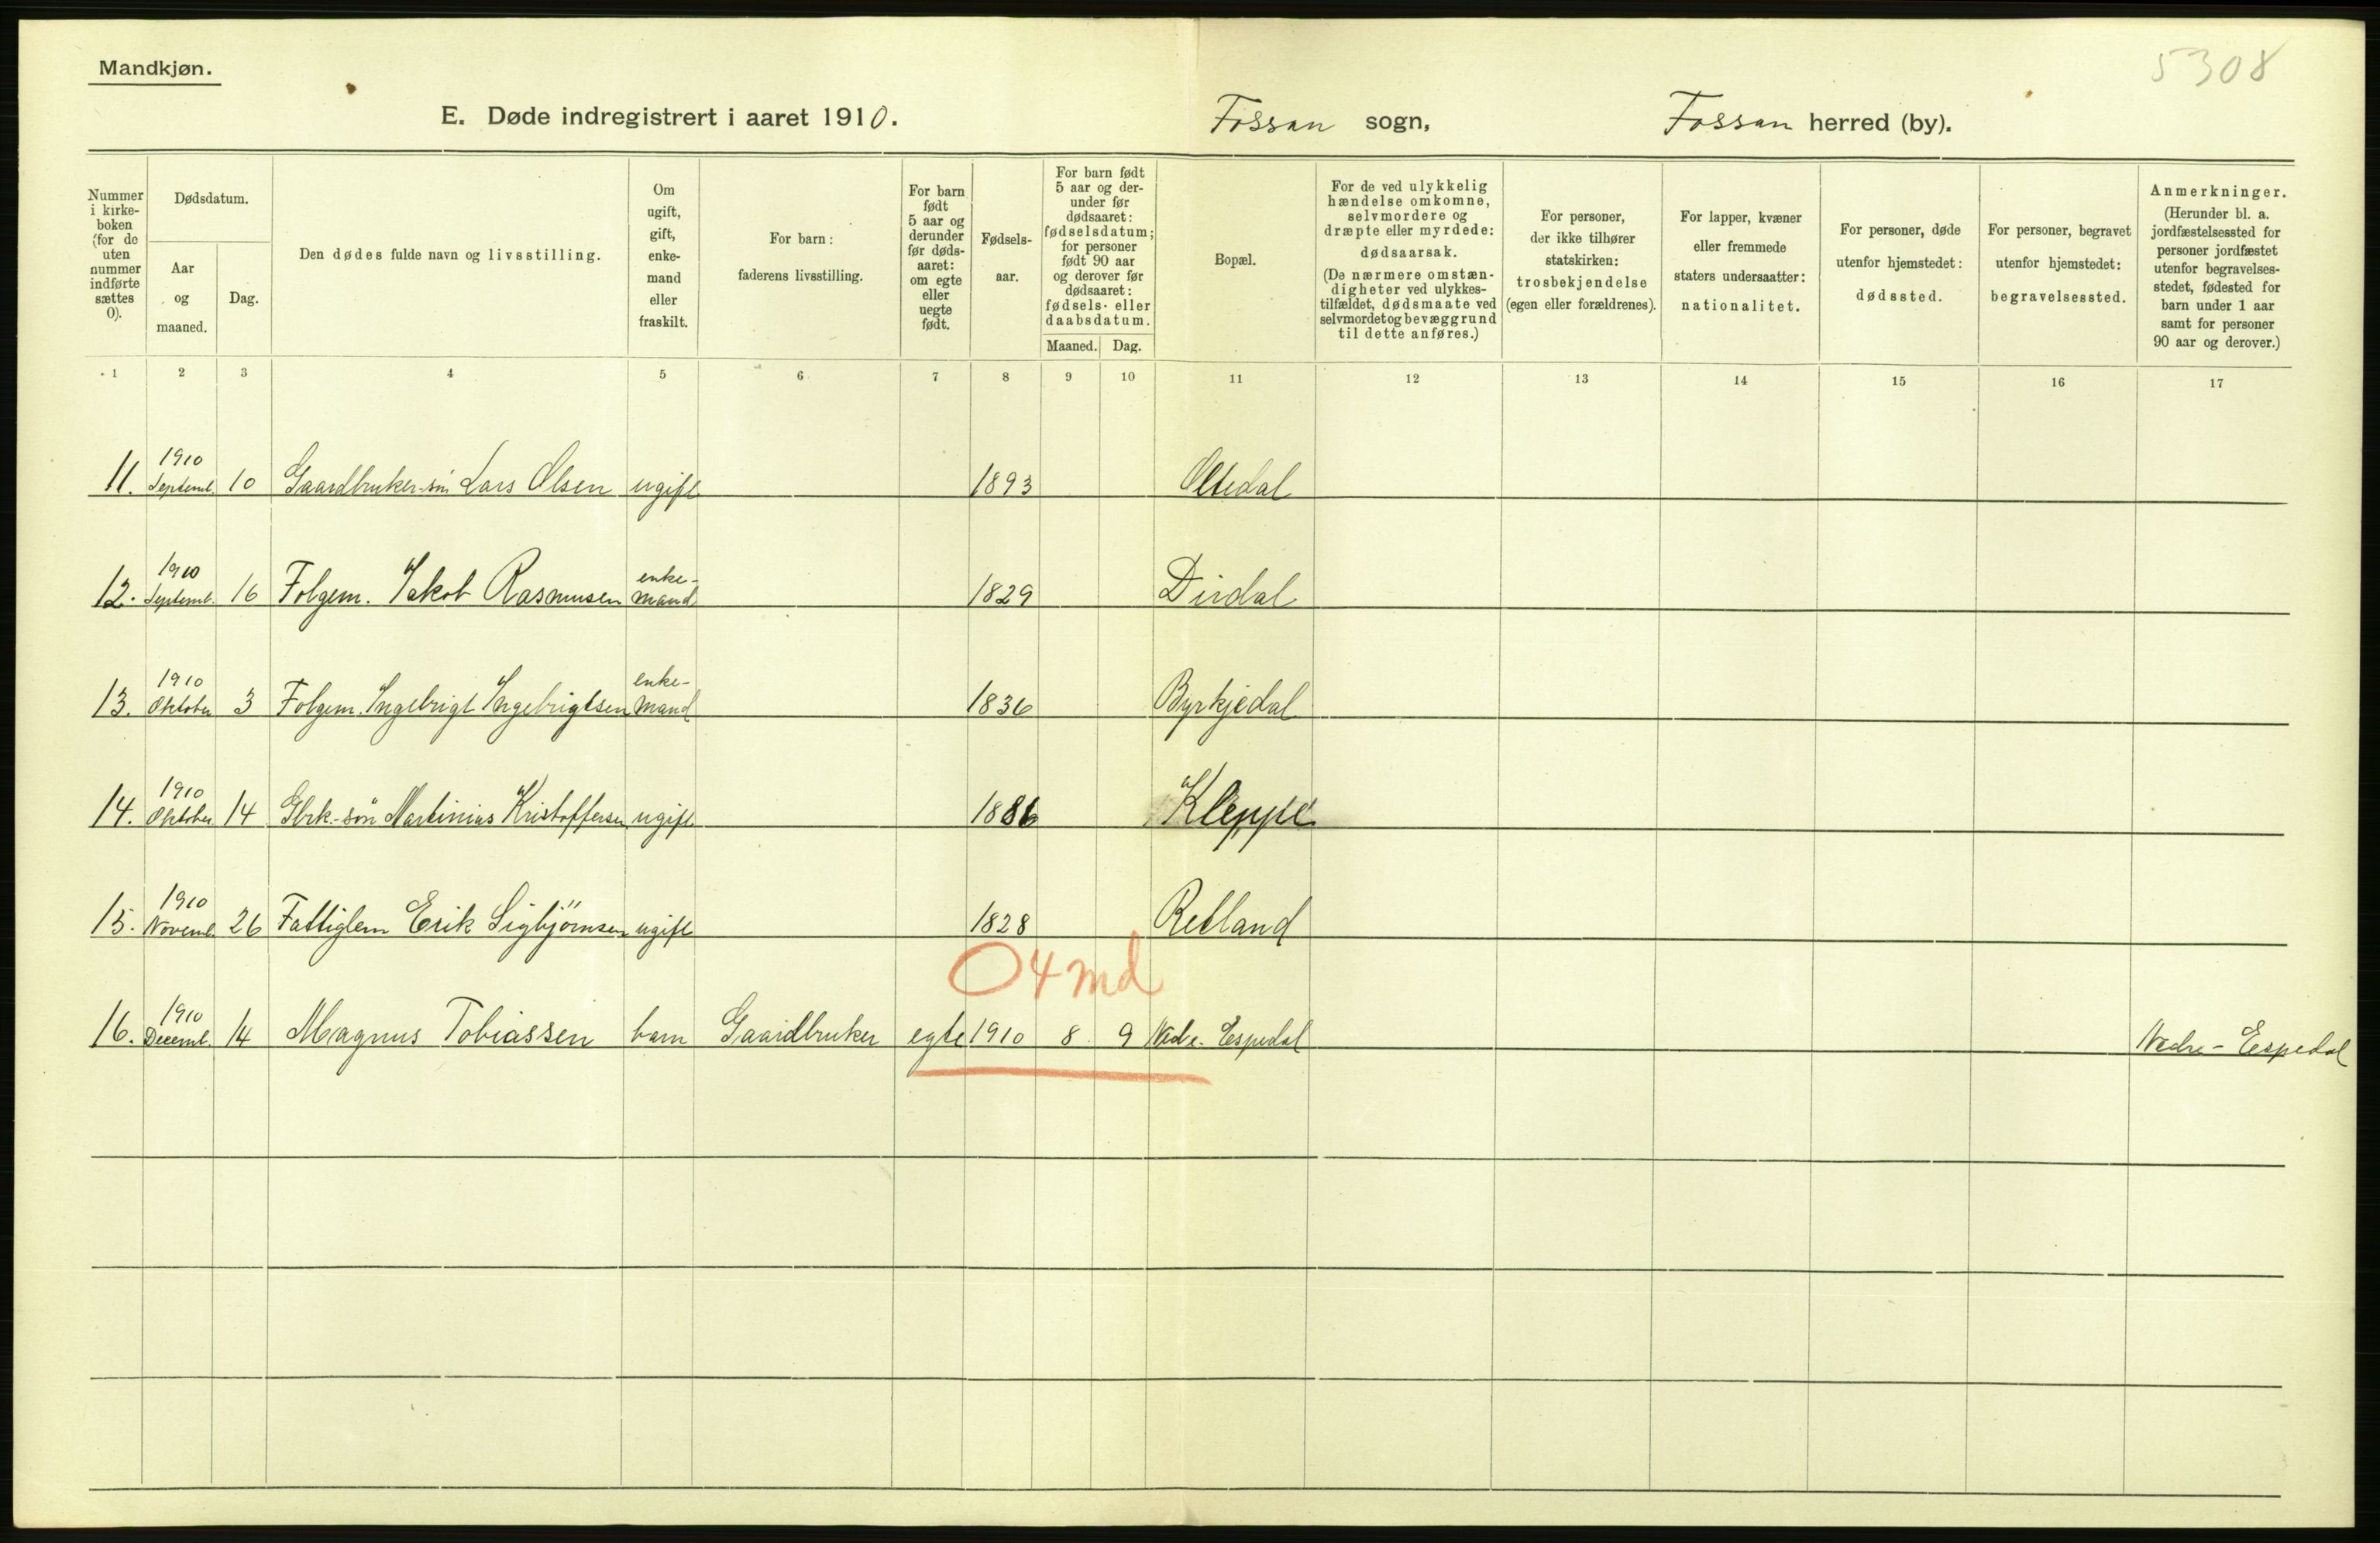 Mandkjøn.
5308
E. Døde indregistrert i aaret 1910. Fossan sogn, Fossan herred (by).
Nummer i kirke- boken (for de uten nummer indførte sættes 0).
Dødsdatum.
Aar og maaned.
Dag.
Den dødes fulde navn og livsstilling.
Om ugift, gift, enke- mand eller fraskilt.
For barn: faderens livsstilling.
For barn født 5 aar og derunder før døds- aaret: om egte eller uegte født.
Fødsels- aar.
For barn født 5 aar og der- under før dødsaaret: fødselsdatum; for personer født 90 aar og derover før dødsaaret: fødsels- eller daabsdatum.
Maaned. Dag.
Bopæl.
For de ved ulykkelig hændelse omkomne, selvmordere og dræpte eller myrdede: dødsaarsak. (De nærmere omstæn- digheter ved ulykkes- tilfældet, dødsmaate ved selvmord et og bevæggrund til dette anføres.)
For personer, der ikke tilhører statskirken: trosbekjendelse (egen eller forældrenes).
For lapper, kvæner eller fremmede staters undersaatter: nationalitet.
For personer, døde utenfor hjemstedet: dødssted.
For personer, begravet utenfor hjemstedet: begravelsessted.
Anmerkninger. (Herunder bl. a. jordfæstelsessted for personer jordfæstet utenfor begravelses- stedet, fødested for barn under 1 aar samt for personer 90 aar og derover.)
1 2 3 4 5 6 7 8 9 10 11 12 13 14 15 16 17
11. 1910 Septemb. 10 Gaardbruker-sön Lars Olsen ugift 1893 Oltedal
12. 1910 Septemb. 16 Folgem. Jakob Rasmusen enke- mand 1829 Dirdal
13. 1910 Oktober 3 Folgem. Ingebrigt Ingebrigtsen enke- mand 1836 Byrkjedal
14. 1910 Oktober 14 Gbrk.-sön Martinius Kristoffersen ugift 1886 Kleppe
15. 1910 Novemb. 26 Fattiglem Erik Sigbjörnsen ugift 1828 Retland
04 md
16. 1910 Decemb. 14 Magnus Tobiassen barn Gaardbruker egte 1910 8 9 Nedr. Espedal Nedre-Espedal